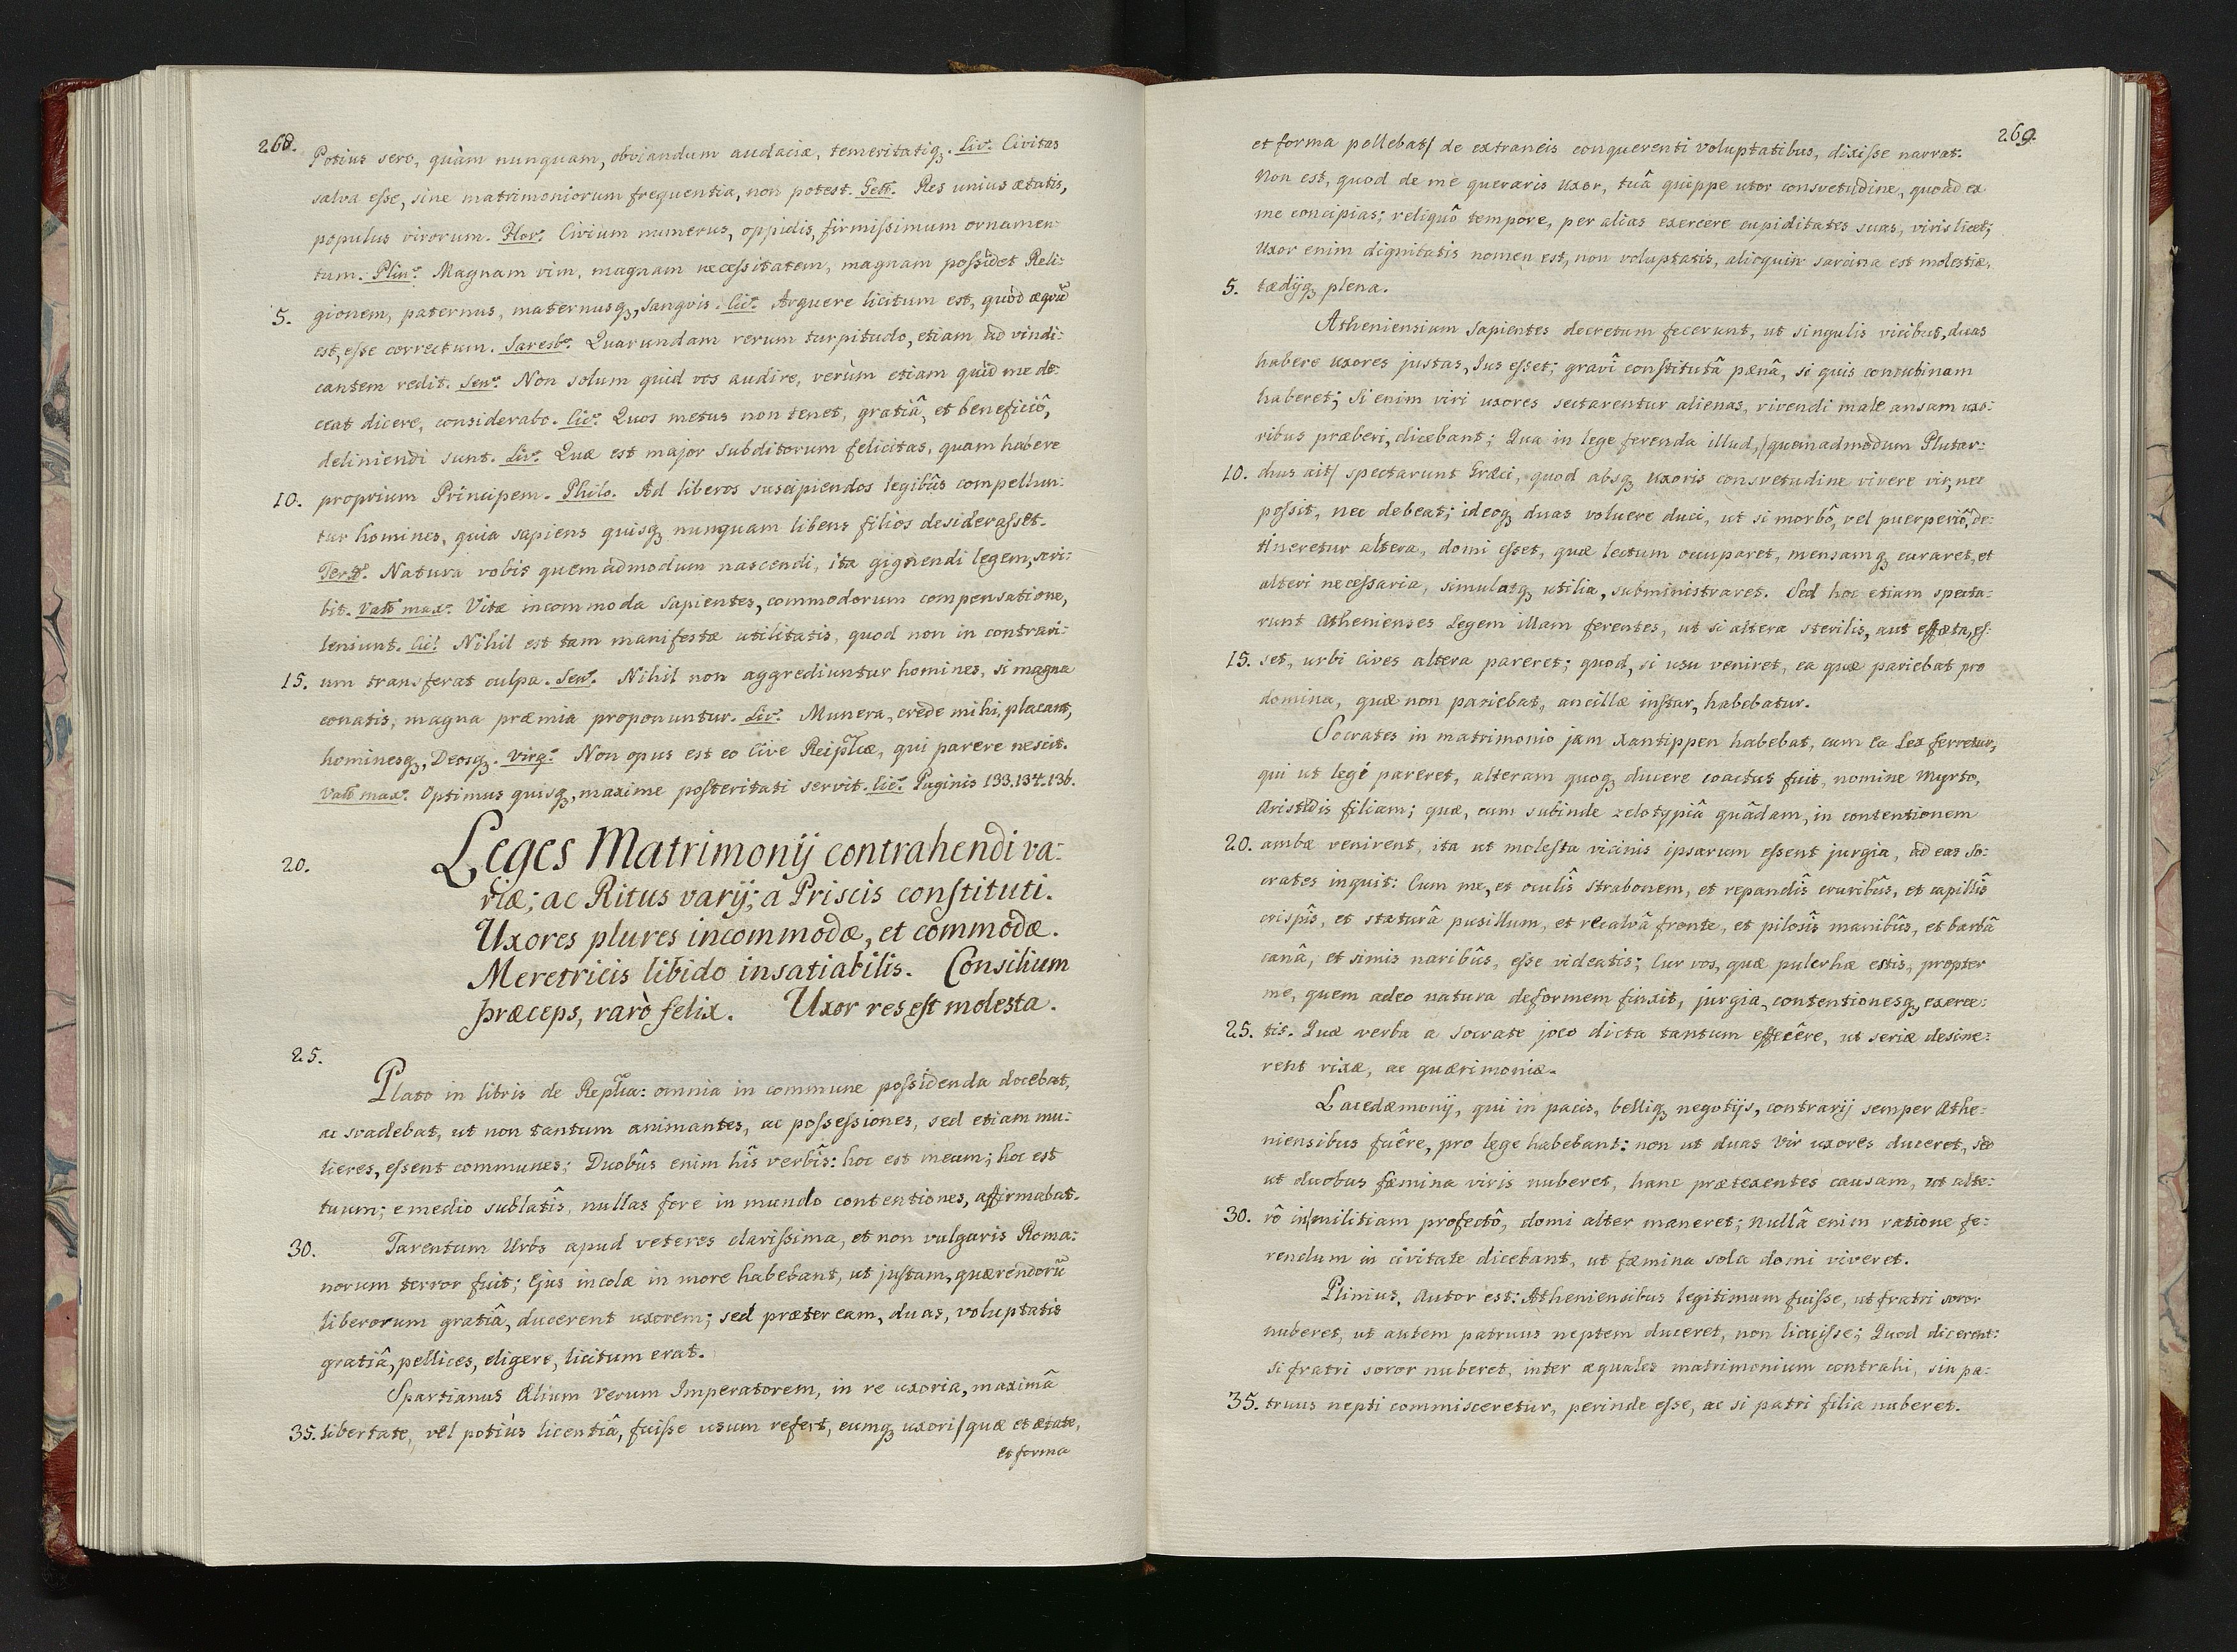 268.
Potius sero, quàm nunquam, obviandum audaciæ, temeritatiq₃. Liv: Civitas
salva eſse, sine matrimoniorum frequentia, non potest. Gell: Res unius ætatis,
populus virorum. Flor: Civium numerus, oppidis, firmiſsimum ornamen
tum. Plin: Magnam vim, magnam neceſsitatem, magnam poſsidet Reli:
5. gionem, paternus, maternusq₃, sangvis. Cic: Arguere licitum est, quod æquũ
est, eſse correctum. Saresb: Quarundam rerum turpitudo, etiam ad vindi:
cantem redit. Sen: Non solum quid vos audire, verùm etiam quid me de:
ceat dicere, considerabo. Cic: Quos metus non tenet, gratiâ, et beneficiô,
deliniendi sunt. Liv: Quæ est major subditorum felicitas, quam habere
10. proprium Principem. Philo. Ad liberos suscipiendos legibûs compellun:
tur homines, quia sapiens quisq₃ nunquam libens filios desideraſset.
Tert: Natura vobis quemadmodum nascendi, ita gignendi legem, scri:
bit. Val: max: Vitæ incommoda sapientes, commodorum compensatione,
leniunt. Cic: Nihil est tam manifestæ utilitatis, quod non in contrari:
15. um transferat culpa. Sen: Nihil non aggrediuntur homines, si magna
conatis, magna præmia proponuntur. Liv: Munera, crede mihi, placant,
hominesq₃, Deosq₃. Virg: Non opus est eo Cive Reiplicæ, qui parere nescit.
Val: max: Optimus quisq₃, maxime poſteritati servit. Cic: Paginis 133.134.136.
20. Leges Matrimonij contrahendi va:
riæ; ac Ritus varij; a Priscis conſtituti.
Uxores plures incommodæ, et commodæ.
Meretricis libido insatiabilis. Consilium
præceps, rarò felix. Uxor res eſt molesta.
25.
Plato in libris de Replica: omnia in commune poſsidenda docebat,
ac svadebat, ut non tantum animantes, ac poſseſsiones, sed etiam mu:
lieres, eſsent communes; Duobûs enim hîs verbîs: hoc est meum; hoc est
tuum; e medio sublatîs, nullas fere in mundo contentiones, affirmabat.
30. Tarentum Urbs apud veteres clariſsima, et non vulgaris Roma:
norum terror fuit; Ejus incolæ in more habebant, ut juſtam, quærendorũ
liberorum gratiâ, ducerent uxorem; sed præter eam, duas, voluptatis
gratiâ, pellices, eligere, licitum erat.
Spartianus Ælium Verum Imperatorem, in re uxoria, maximâ
35. libertate, vel potiùs licentiâ, fuiſse usum refert, eumq₃ uxori/ quæ et ætate,
et forma
269.
et forma pollebat/ de extraneis conquerenti voluptatibus, dixiſse narrat.
Non est, quod de me queraris uxor, tuâ quippe utor consvetudine, quoad ex
me concipias; reliquô tempore, per alias exercere cupiditates suas, viris licet;
Uxor enim dignitatis nomen est, non voluptatis, alioquin sarcina est molestiæ,
5. tædijq₃ plena.
Atheniensium sapientes decretum fecerunt, ut singulis vicibus, duas
habere uxores justas, Jus eſset; gravî conſtitutâ pœnâ, si quis concubinam
haberet; Si enim viri uxores sectarentur alienas, vivendi male ansam uxo:
ribus præberi, dicebant; Qua in lege ferenda illud, /quemadmodum Plutar:
10. chus ait/ spectarunt Græci, quod absq₃ uxoris consvetudine vivere vir, nec
poſsit, nec debeat; ideoq₃ duas voluere duci, ut si morbô, vel puerperiô, de:
tineretur altera, domi eſset, quæ lectum occuparet, mensamq₃ curaret, et
alteri neceſsaria, simulatq₃ utilia, subministraret. Sed hoc etiam specta:
runt Athenienses Legem illam ferentes, ut si altera sterilis, aut effæta, eſ:
15. set, urbi cives altera pareret; quod, si usu veniret, ea quæ pariebat pro
domina, quæ non pariebat, ancillæ inſtar, habebatur.
Socrates in matrimonio jam Xantippen habebat, cum ea Lex ferretur,
qui ut legi pareret, alteram quoq₃ ducere coactus fuit, nomine Myrto,
Aristidis filiam; quæ, cum subinde zelotypiâ quâdam, in contentionem
20. ambæ venirent, ita ut moleſta vicinis ipsarum eſsent jurgia, ad eas So:
crates inquit: Cum me, et oculîs Strabonem, et repandîs cruribûs, et capillîs
crispîs, et staturâ pusillum, et recalvâ fronte, et pilosîs manibûs, et barbâ
canâ, et simis naribûs, eſse videatis; Cur vos, quæ pulchræ estis, propter
me, quem adeo natura deformem finxit, jurgia, contentionesq₃, exerce:
25. tis. Quæ verba a Socrate joco dicta tantum effecêre, ut seriæ desine:
rent rixæ, ac quærimoniæ.
Lacedæmonij, qui in pacis, belliq₃ negotijs, contrarij semper Athe:
niensibus fuêre, pro lege habebant: non ut duas vir uxores duceret, sed
ut duobus fæmina viris nuberet, hanc prætexentes causam, ut alte:
30. rô in/militiam profectô, domi alter maneret; Nullâ enim ratione fe:
rendum in civitate dicebant, ut fæmina sola domi viveret.
Plinius, Autor est: Atheniensibus legitimum fuiſse, ut fratri soror
nuberet, ut autem patruus neptem duceret, non licuiſse; Quod dicerent:
si fratri soror nuberet, inter æquales matrimonium contrahi, sin pa:
35. truus nepti commisceretur, perinde eſse, ac si patri filia nuberet.